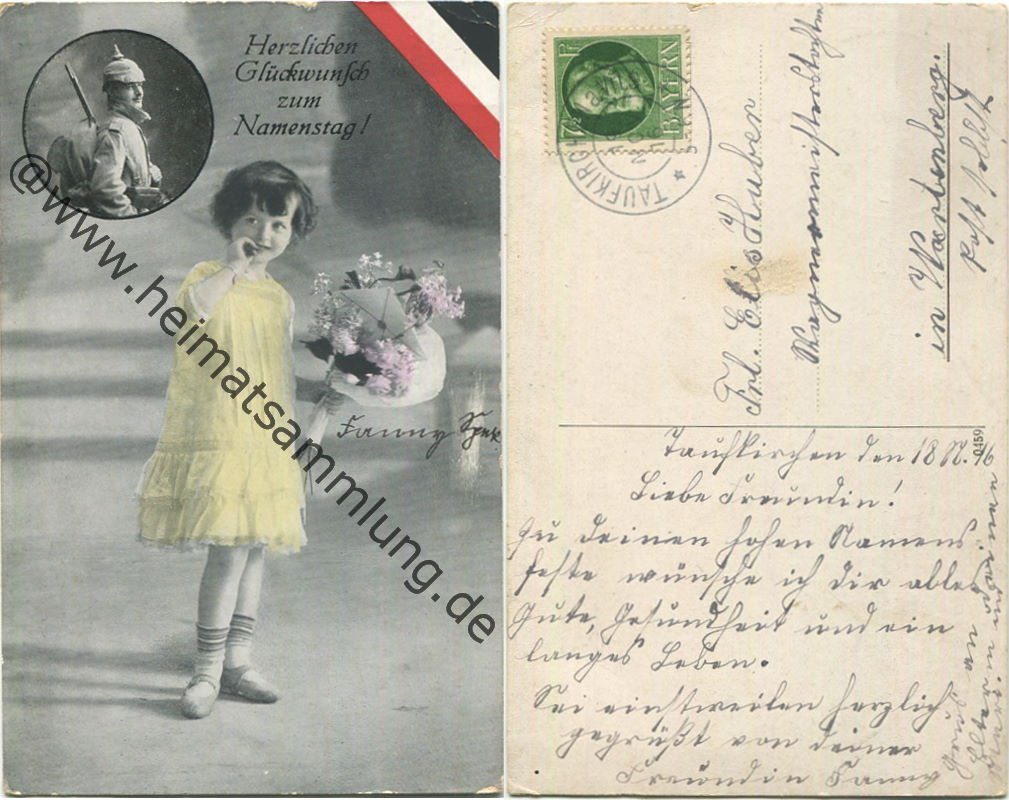 Herzlichen
Glückwunsch
zum
Namenstag!
@www.heimatsammlung.de
Fanny
7½ Pf
BAYERN
TAUFKIRCH
Frl. Elis Huber
in Wartenberg.
Post selbst
0459
Taufkirchen den 18 N. 16
Liebe Freundin!
Zu deinen hohen Namens
feste wünsche ich dir alles
Gute, Gesundheit und ein
langes Leben.
Sei einstweilen herzlich
gegrüßt von deiner
Freundin Fanny